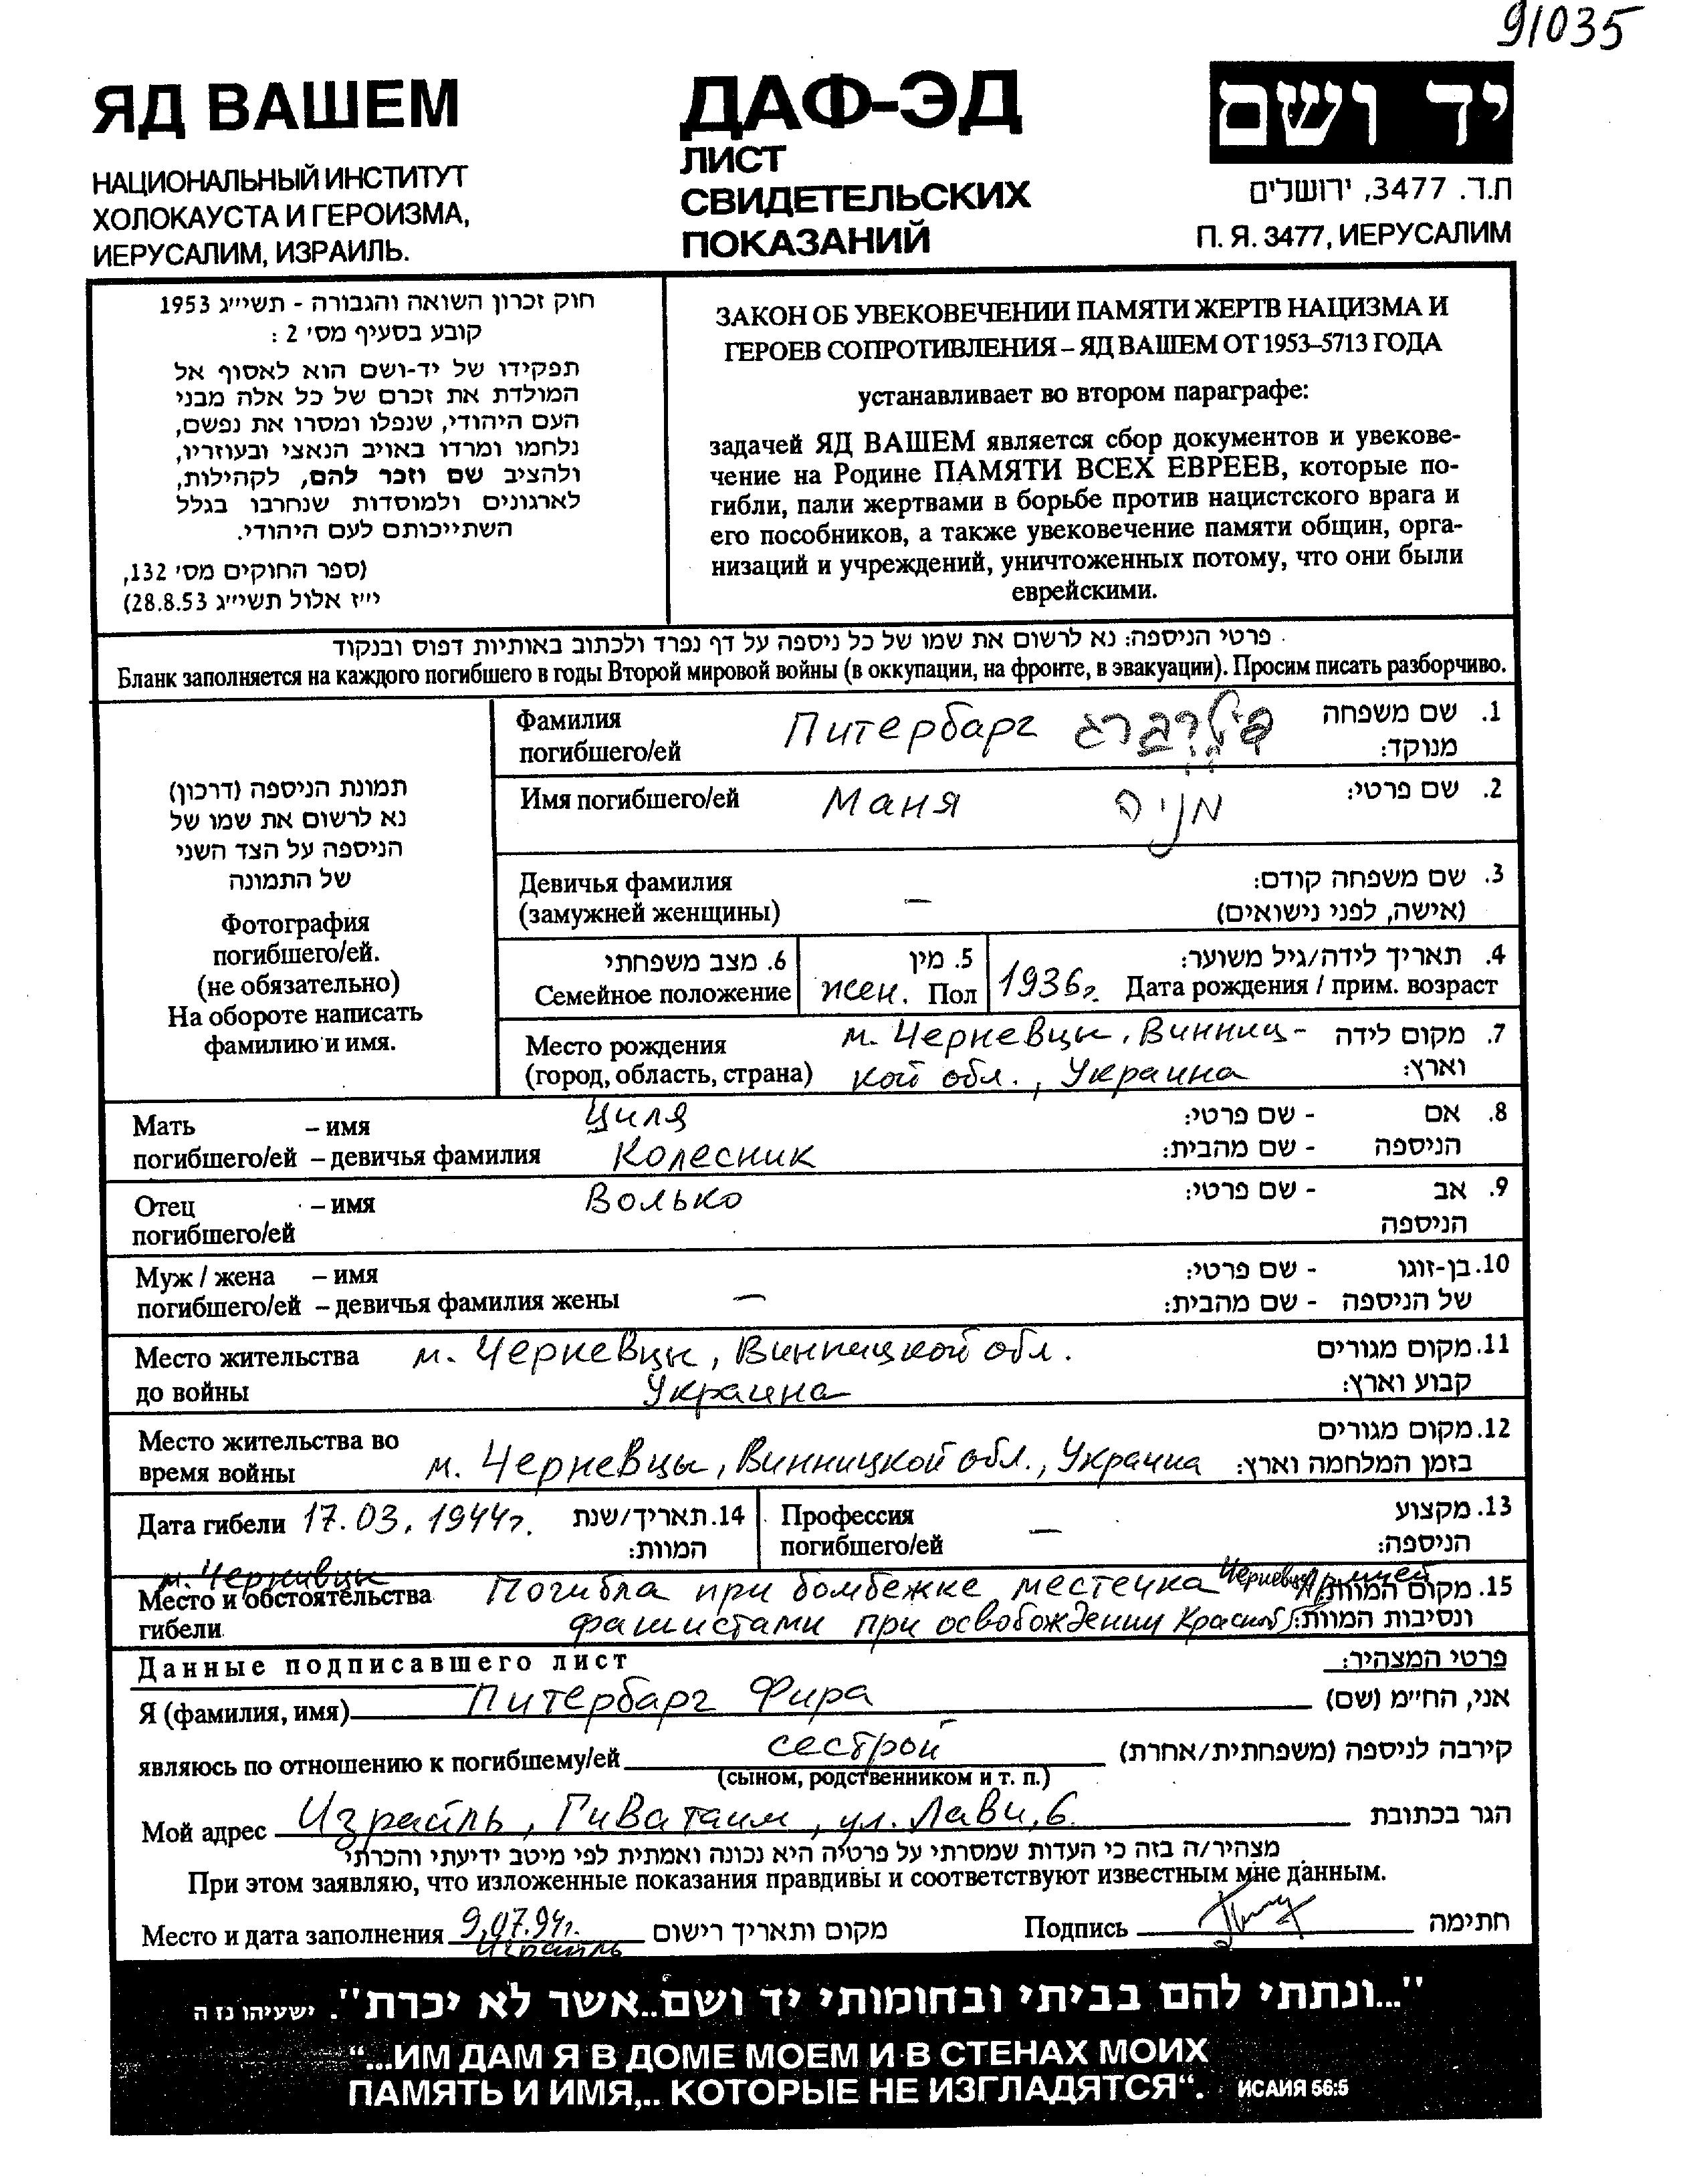 91035
ЯД ВАШЕМ
НАЦИОНАЛЬНЫЙ ИНСТИТУТ
ХОЛОКАУСТА И ГЕРОИЗМА,
ИЕРУСАЛИМ, ИЗРАИЛЬ.
ДАФ-ЭД
ЛИСТ
СВИДЕТЕЛЬСКИХ
ПОКАЗАНИЙ
יד ושם
ת.ד. 3477, ירושלים
П. Я. 3477, ИЕРУСАЛИМ
חוק זכרון השואה והגבורה - תשי״ג 1953
קובע בסעיף מס׳ 2 :
תפקידו של יד-ושם הוא לאסוף אל
המולדת את זכרם של כל אלה מבני
העם היהודי, שנפלו ומסרו את נפשם,
נלחמו ומרדו באויב הנאצי ובעוזריו,
ולהציב שם וזכר להם, לקהילות,
לארגונים ולמוסדות שנחרבו בגלל
השתייכותם לעם היהודי.
(ספר החוקים מס׳ 132,
י״ז אלול תשי״ג 28.8.53)
ЗАКОН ОБ УВЕКОВЕЧЕНИИ ПАМЯТИ ЖЕРТВ НАЦИЗМА И
ГЕРОЕВ СОПРОТИВЛЕНИЯ – ЯД ВАШЕМ ОТ 1953–5713 ГОДА
устанавливает во втором параграфе:
задачей ЯД ВАШЕМ является сбор документов и увекове-
чение на Родине ПАМЯТИ ВСЕХ ЕВРЕЕВ, которые по-
гибли, пали жертвами в борьбе против нацистского врага и
его пособников, а также увековечение памяти общин, орга-
низаций и учреждений, уничтоженных потому, что они были
еврейскими.
פרטי הניספה: נא לרשום את שמו של כל ניספה על דף נפרד ולכתוב באותיות דפוס ובנקוד
Бланк заполняется на каждого погибшего в годы Второй мировой войны (в оккупации, на фронте, в эвакуации). Просим писать разборчиво.
תמונת הניספה (דרכון)
נא לרשום את שמו של
הניספה על הצד השני
של התמונה
Фотография
погибшего/ей.
(не обязательно)
На обороте написать
фамилию и имя.
Фамилия Питербарг פיטרברג 1. שם משפחה
погибшего/ей מנוקד:
Имя погибшего/ей Маня מניה 2. שם פרטי:
Девичья фамилия 3. שם משפחה קודם:
(замужней женщины) — (אישה, לפני נישואים)
6. מצב משפחתי 5. מין 4. תאריך לידה/גיל משוער:
Семейное положение жен. Пол 1936г. Дата рождения / прим. возраст
Место рождения м. Черневцы, Винниц- 7. מקום לידה
(город, область, страна) кой обл., Украина וארץ:
Мать – имя Циля 8. אם - שם פרטי:
погибшего/ей – девичья фамилия Колесник הניספה - שם מהבית:
Отец – имя Волько 9. אב - שם פרטי:
погибшего/ей הניספה
Муж / жена – имя 10. בן-זוגו - שם פרטי:
погибшего/ей – девичья фамилия жены — של הניספה - שם מהבית:
Место жительства м. Черневцы, Винницкой обл. 11. מקום מגורים
до войны Украина קבוע וארץ:
Место жительства во 12. מקום מגורים
время войны м. Черневцы, Винницкой обл., Украина בזמן המלחמה וארץ:
Дата гибели 17.03.1944г. 14. תאריך/שנת Профессия 13. מקצוע
המוות: погибшего/ей — הניספה:
м. Чернивцы
Место и обстоятельства Погибла при бомбежке местечка Черневцы Армией 15. מקום המוות
гибели фашистами при освобождении Красной ונסיבות המוות:
Данные подписавшего лист פרטי המצהיר:
Я (фамилия, имя) Питербарг Фира אני, הח״מ (שם)
являюсь по отношению к погибшему/ей сестрой קירבה לניספה (משפחתית/אחרת)
(сыном, родственником и т. п.)
Мой адрес Израиль, Гиватаим, ул. Лави, 6. הגר בכתובת
מצהיר/ה בזה כי העדות שמסרתי על פרטיה היא נכונה ואמתית לפי מיטב ידיעתי והכרתי
При этом заявляю, что изложенные показания правдивы и соответствуют известным мне данным.
Место и дата заполнения 9.07.94г. מקום ותאריך רישום Подпись חתימה
Израиль
"...ונתתי להם בביתי ובחומותי יד ושם..אשר לא יכרת". ישעיהו נז ה
“...ИМ ДАМ Я В ДОМЕ МОЕМ И В СТЕНАХ МОИХ
ПАМЯТЬ И ИМЯ,.. КОТОРЫЕ НЕ ИЗГЛАДЯТСЯ“. ИСАИЯ 56:5